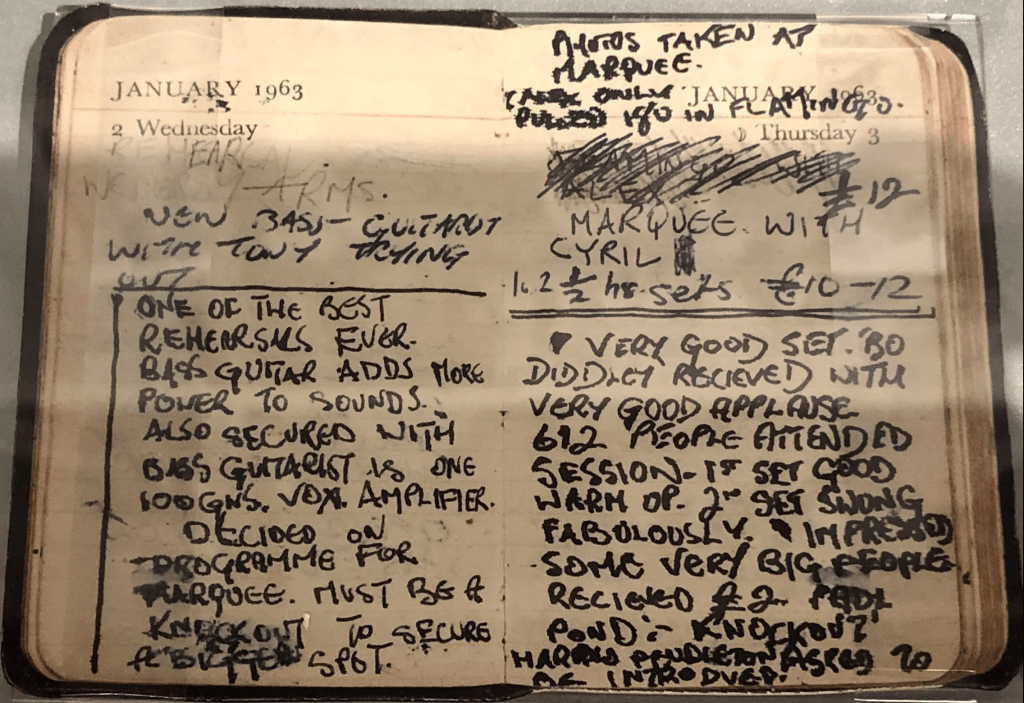 JANUARY 1963
2 Wednesday
REHEARSAL
ARMS.
NEW BASS-GUITARIST
WITH TONY TRYING
OUT
ONE OF THE BEST
REHEARSALS EVER.
BASS GUITAR ADDS MORE
POWER TO SOUNDS.
ALSO SECURED WITH
BASS GUITARIST IS ONE
100GNS. VOX. AMPLIFIER.
DECIDED ON
PROGRAMME FOR
MARQUEE. MUST BE A
KNOCKOUT TO SECURE
A BIGGER SPOT.
PHOTOS TAKEN AT
MARQUEE.
ONLY JANUARY 1963
PULLED 180 IN FLAMINGO.
Thursday 3
£12
MARQUEE WITH
CYRIL
1. 2 ½ hr. sets £10-12
VERY GOOD SET. BO
DIDDLEY RECIEVED WITH
VERY GOOD APPLAUSE
612 PEOPLE ATTENDED
SESSION. 1ST SET GOOD
WARM UP. 2ND SET SWUNG
FABULOUSLY. IMPRESSED
SOME VERY BIG PEOPLE
RECIEVED £2. PAUL
POND:- KNOCKOUT'
HAROLD PENDLETON ASKED TO
BE INTRODUED.